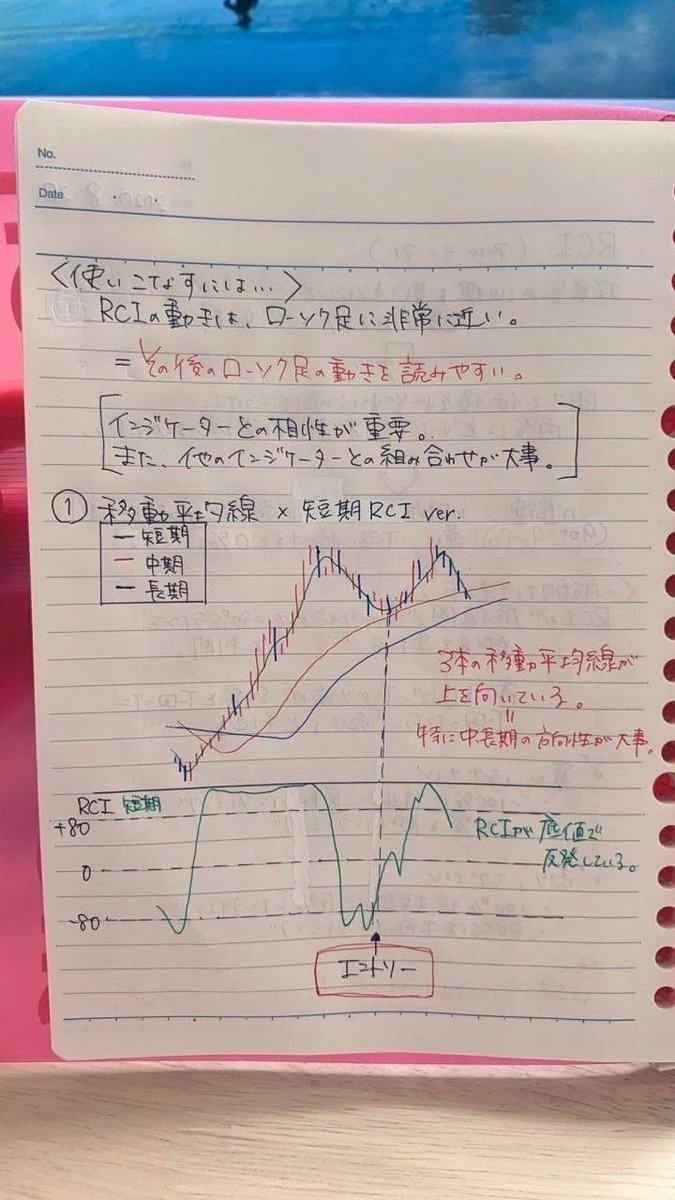 No.
Date
〈使いこなすには…〉
RCIの動きは、ローソク足に非常に近い。
= その後のローソク足の動きを読みやすい。
インジケーターとの相性が重要。
また、他のインジケーターとの組み合わせが大事。
① 移動平均線 × 短期RCI ver.
短期
中期
長期
3本の移動平均線が
上を向いている。
=
特に中長期の方向性が大事。
RCI 短期
+80
0
-80
RCIが底値で
反発している。
エントリー